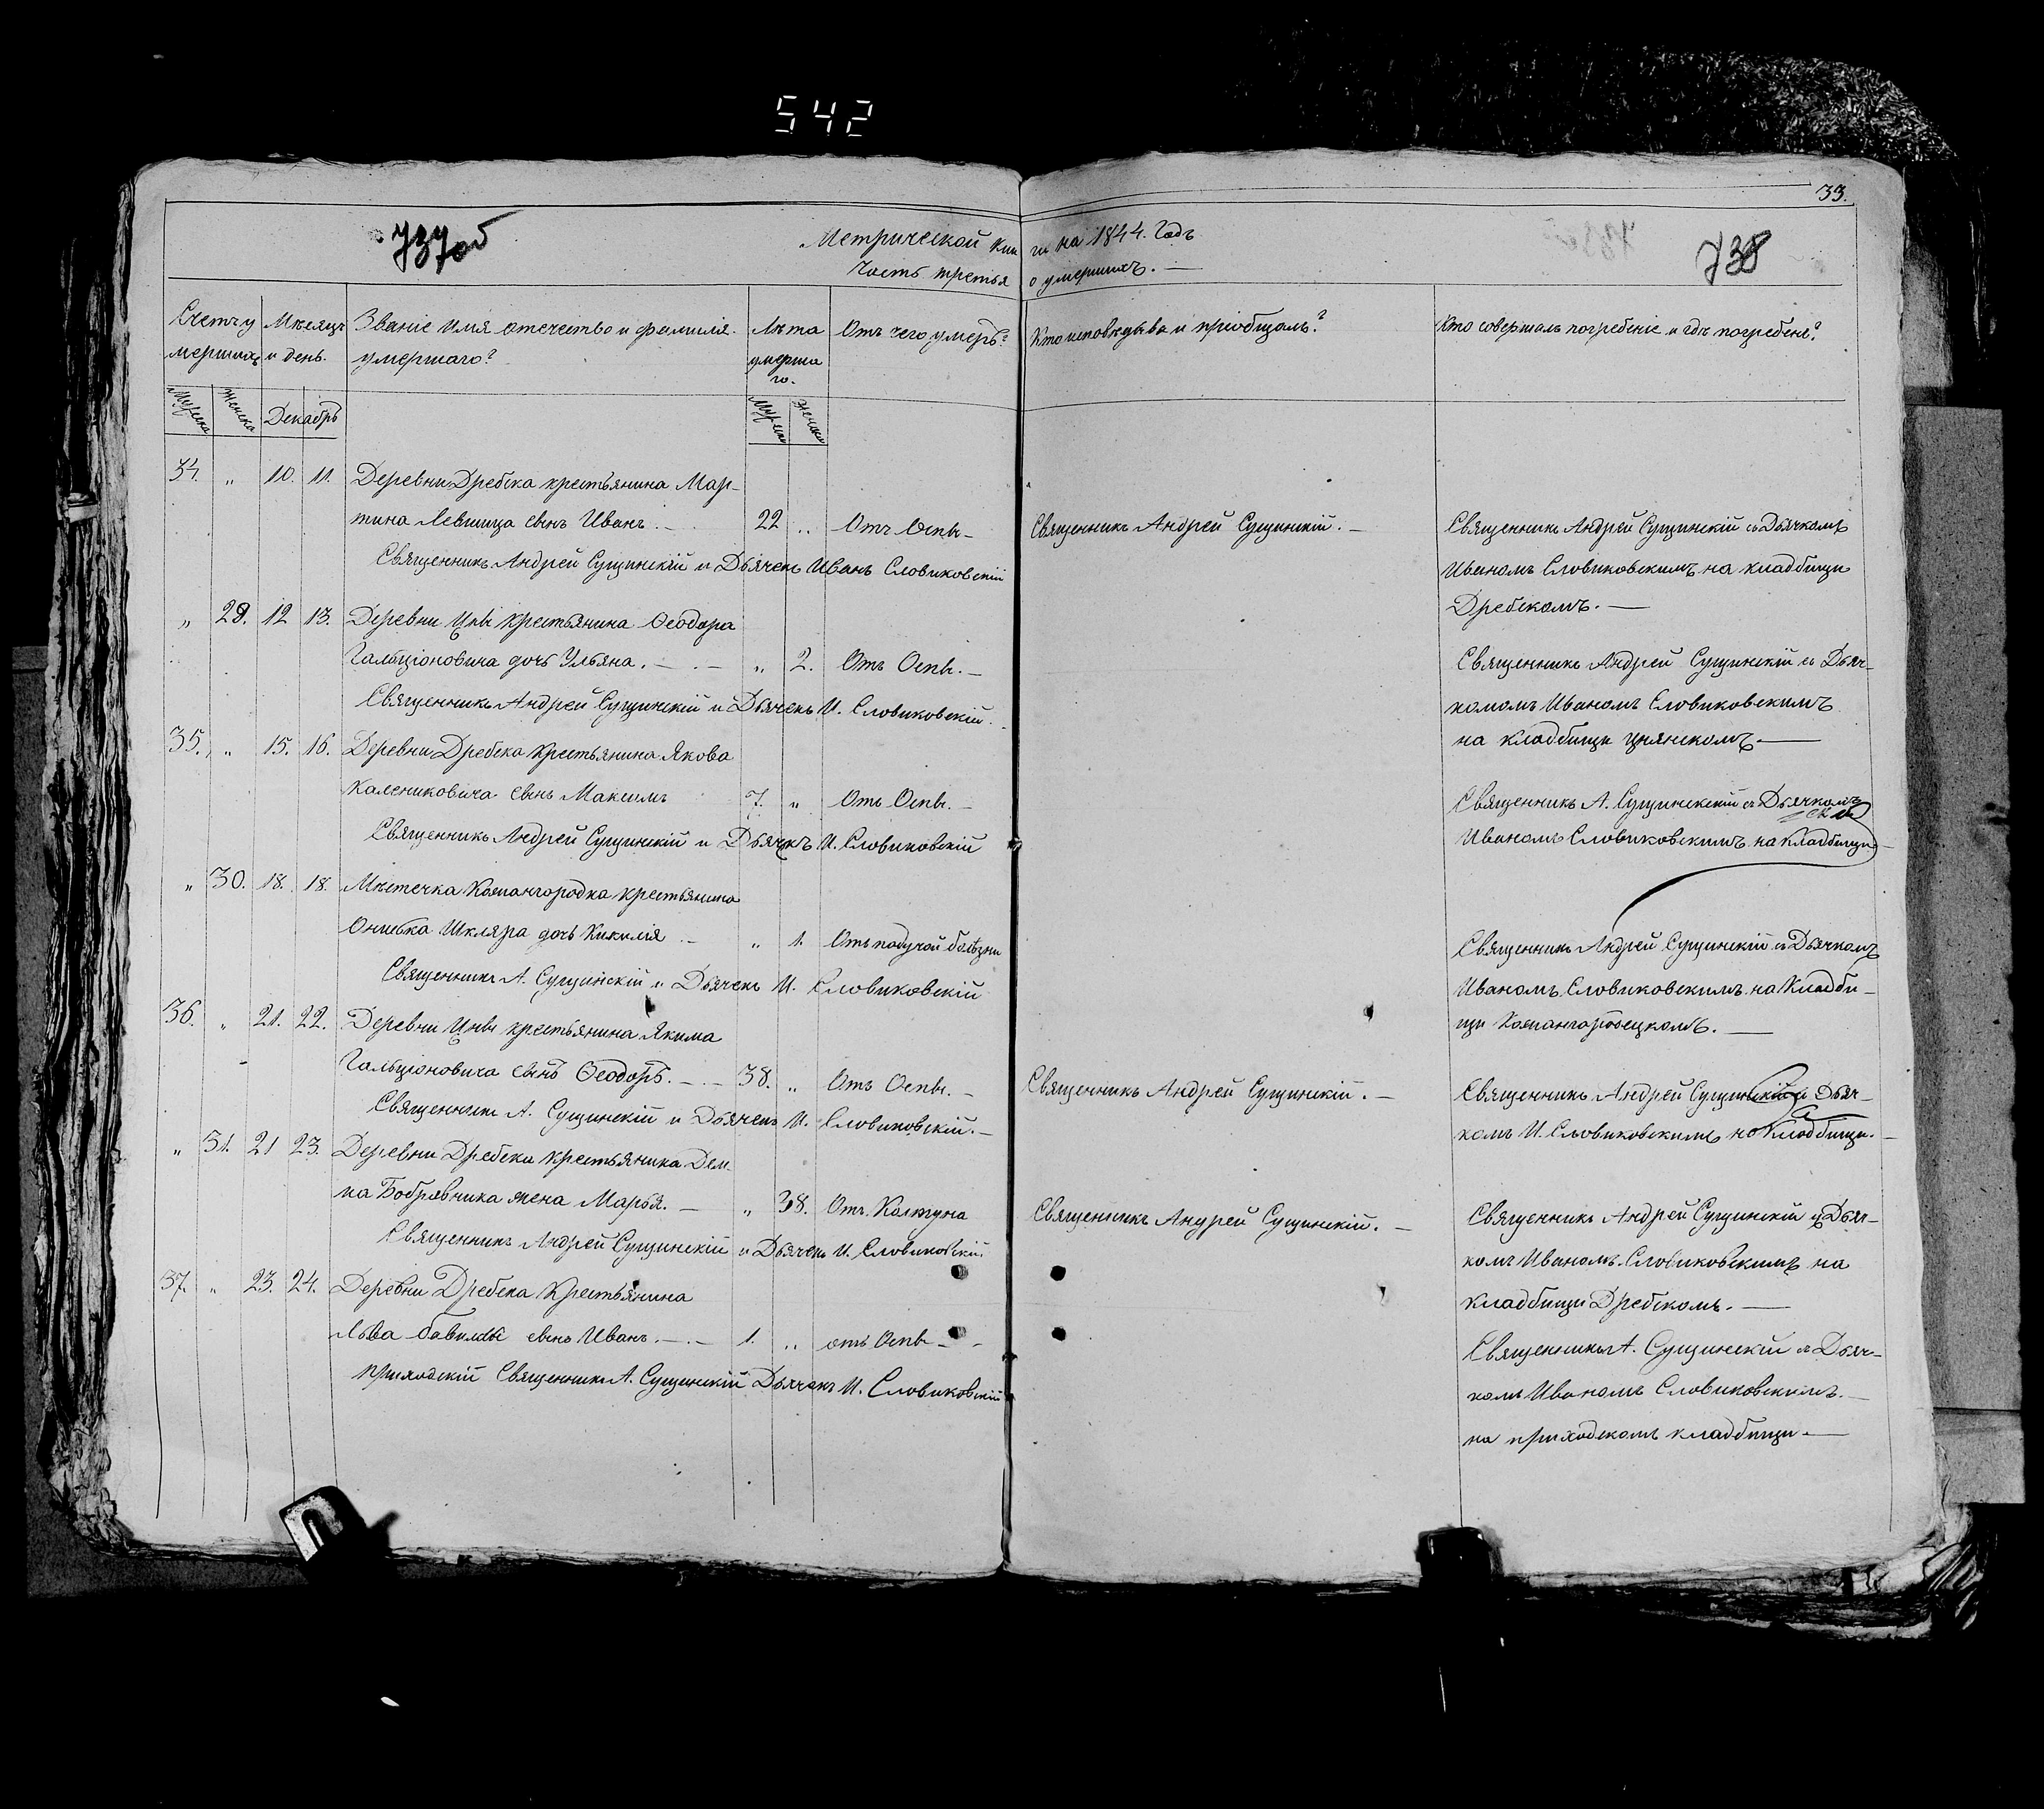 542
33.
737об
738
Метрической кни ги на 1844. Годъ
Часть третья о умершихъ. —
Счетъ у мершихъ
Мѣсяцъ и день.
Званіе имя отечество и фамилія умершаго?
Лѣта умерша го.
Отъ чего умеръ?
Кто исповѣдыва и пріобщалъ?
Кто совершалъ погребеніе и гдѣ погребенъ?
Мужеска Женска Декабрь Мужеска Женска
34. „ 10. 11. Деревни Дребска крестьянина Мар-
тина Левшица сынъ Иванъ. 22 „ Отъ Оспы - Священникъ Андрей Сущинскій. — Священникъ Андрей Сущинскій съ Дьячкомъ
Священникъ Андрей Сущинскій и Дьячекъ Иванъ Словиковскій Иваномъ Словиковскимъ на кладбищи
Дребскомъ. —
„ 29. 12 13. Деревни Цны крестьянина Ѳеодора
Гальціоновича дочь Ульяна. — „ 2. Отъ Оспы. — Священникъ Андрей Сущинскій съ Дьяч-
Священникъ Андрей Сущинскій и Дьячекъ И. Словиковскій. комомъ Иваномъ Словиковскимъ
35. „ 15. 16. Деревни Дребска крестьянина Якова на кладбищи Цнянскомъ —
Калениковича сынъ Максимъ 7. „ Отъ Оспы. — Священникъ А. Сущинскій съ Дьячкомъ
Священникъ Андрей Сущинскій и Дьячекъ И. Словиковскій Иваномъ Словиковскимъ на кладбищи
„ 30. 18. 18. Мѣстечка Кожангородка крестьянина
Ониска Шкляра дочь Кикилія — „ 1. Отъ падучой болѣзни Священникъ Андрей Сущинскій съ Дьячкомъ
Священникъ А. Сущинскій и Дьячекъ И. Словиковскій Иваномъ Словиковскимъ на Кладби-
щи Кожангородецкомъ. —
36. „ 21. 22. Деревни Цны крестьянина Якима
Гальціоновича сынъ Ѳеодоръ. — 38. „ Отъ Оспы. — Священникъ Андрей Сущинскій. — Священникъ Андрей Сущинскій съ Дьяч-
Священникъ А. Сущинскій и Дьячекъ И. Словиковскій. — комъ И. Словиковскимъ на Кладбищи. —
„ 31. 21 23. Деревни Дребска крестьянина Дем-
ка Бобровника жена Марья. — „ 38. Отъ Колтуна Священникъ Андрей Сущинскій. — Священникъ Андрей Сущинскій съ Дьяч-
Священникъ Андрей Сущинскій и Дьячекъ И. Словиковскій комъ Иваномъ Словиковскимъ на
кладбищи Дребскомъ. —
37. „ 23. 24. Деревни Дребска Крестьянина
Льва сынъ Иванъ. — 1. „ отъ Оспы — Священникъ А. Сущинскій съ Дьяч-
Приходскій Священникъ А. Сущинскій Дьячекъ И. Словиковскій комъ Иваномъ Словиковскимъ. —
на приходскомъ кладбищи —